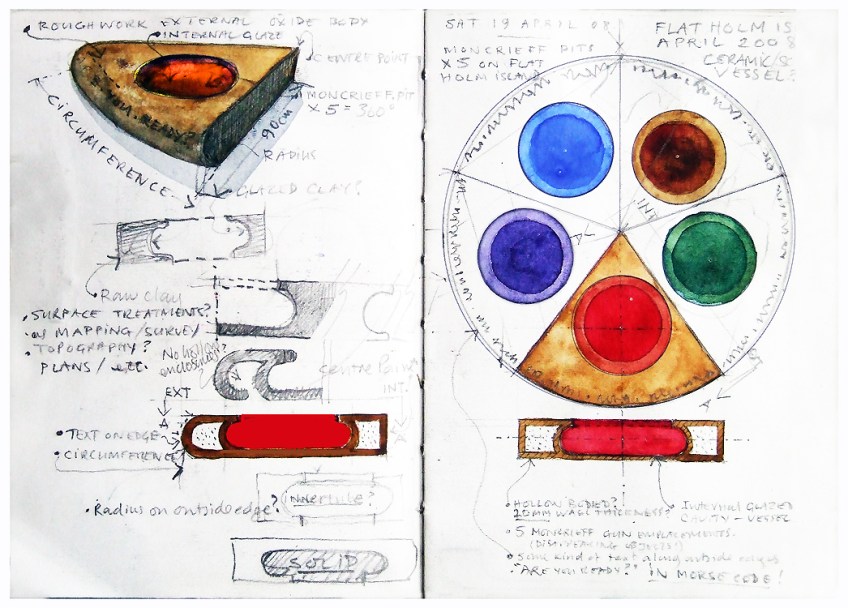 ROUGHWORK EXTERNAL OXIDE BODY
INTERNAL GLAZE
CENTRE POINT
MONCRIEFF PIT
X 5 = 360°
90cm
RADIUS
CIRCUMFERENCE
ARE YOU READY?
GLAZED CLAY?
Raw clay
• SURFACE TREATMENTS?
MAPPING/SURVEY
• TOPOGRAPHY?
PLANS/etc.
No hollow
enclosures?
centre Point
INT.
EXT
A
• TEXT ON EDGE
• CIRCUMFERENCE
• Radius on outside edge?
INNER TUBE?
SOLID
SAT 19 APRIL 08
MONCRIEFF PITS
X5 ON FLAT
HOLM ISLAND
FLAT HOLM IS
APRIL 2008
CERAMICS
VESSEL?
INT
A
A
• HOLLOW BODIED?
20MM WALL THICKNESS?
• 5 MONCRIEFF GUN EMPLACEMENTS.
(DISAPPEARING OBJECTS!)
• Some kind of text along outside edges
"ARE YOU READY?" IN MORSE CODE!
• Internal GLAZED
CAVITY - VESSEL